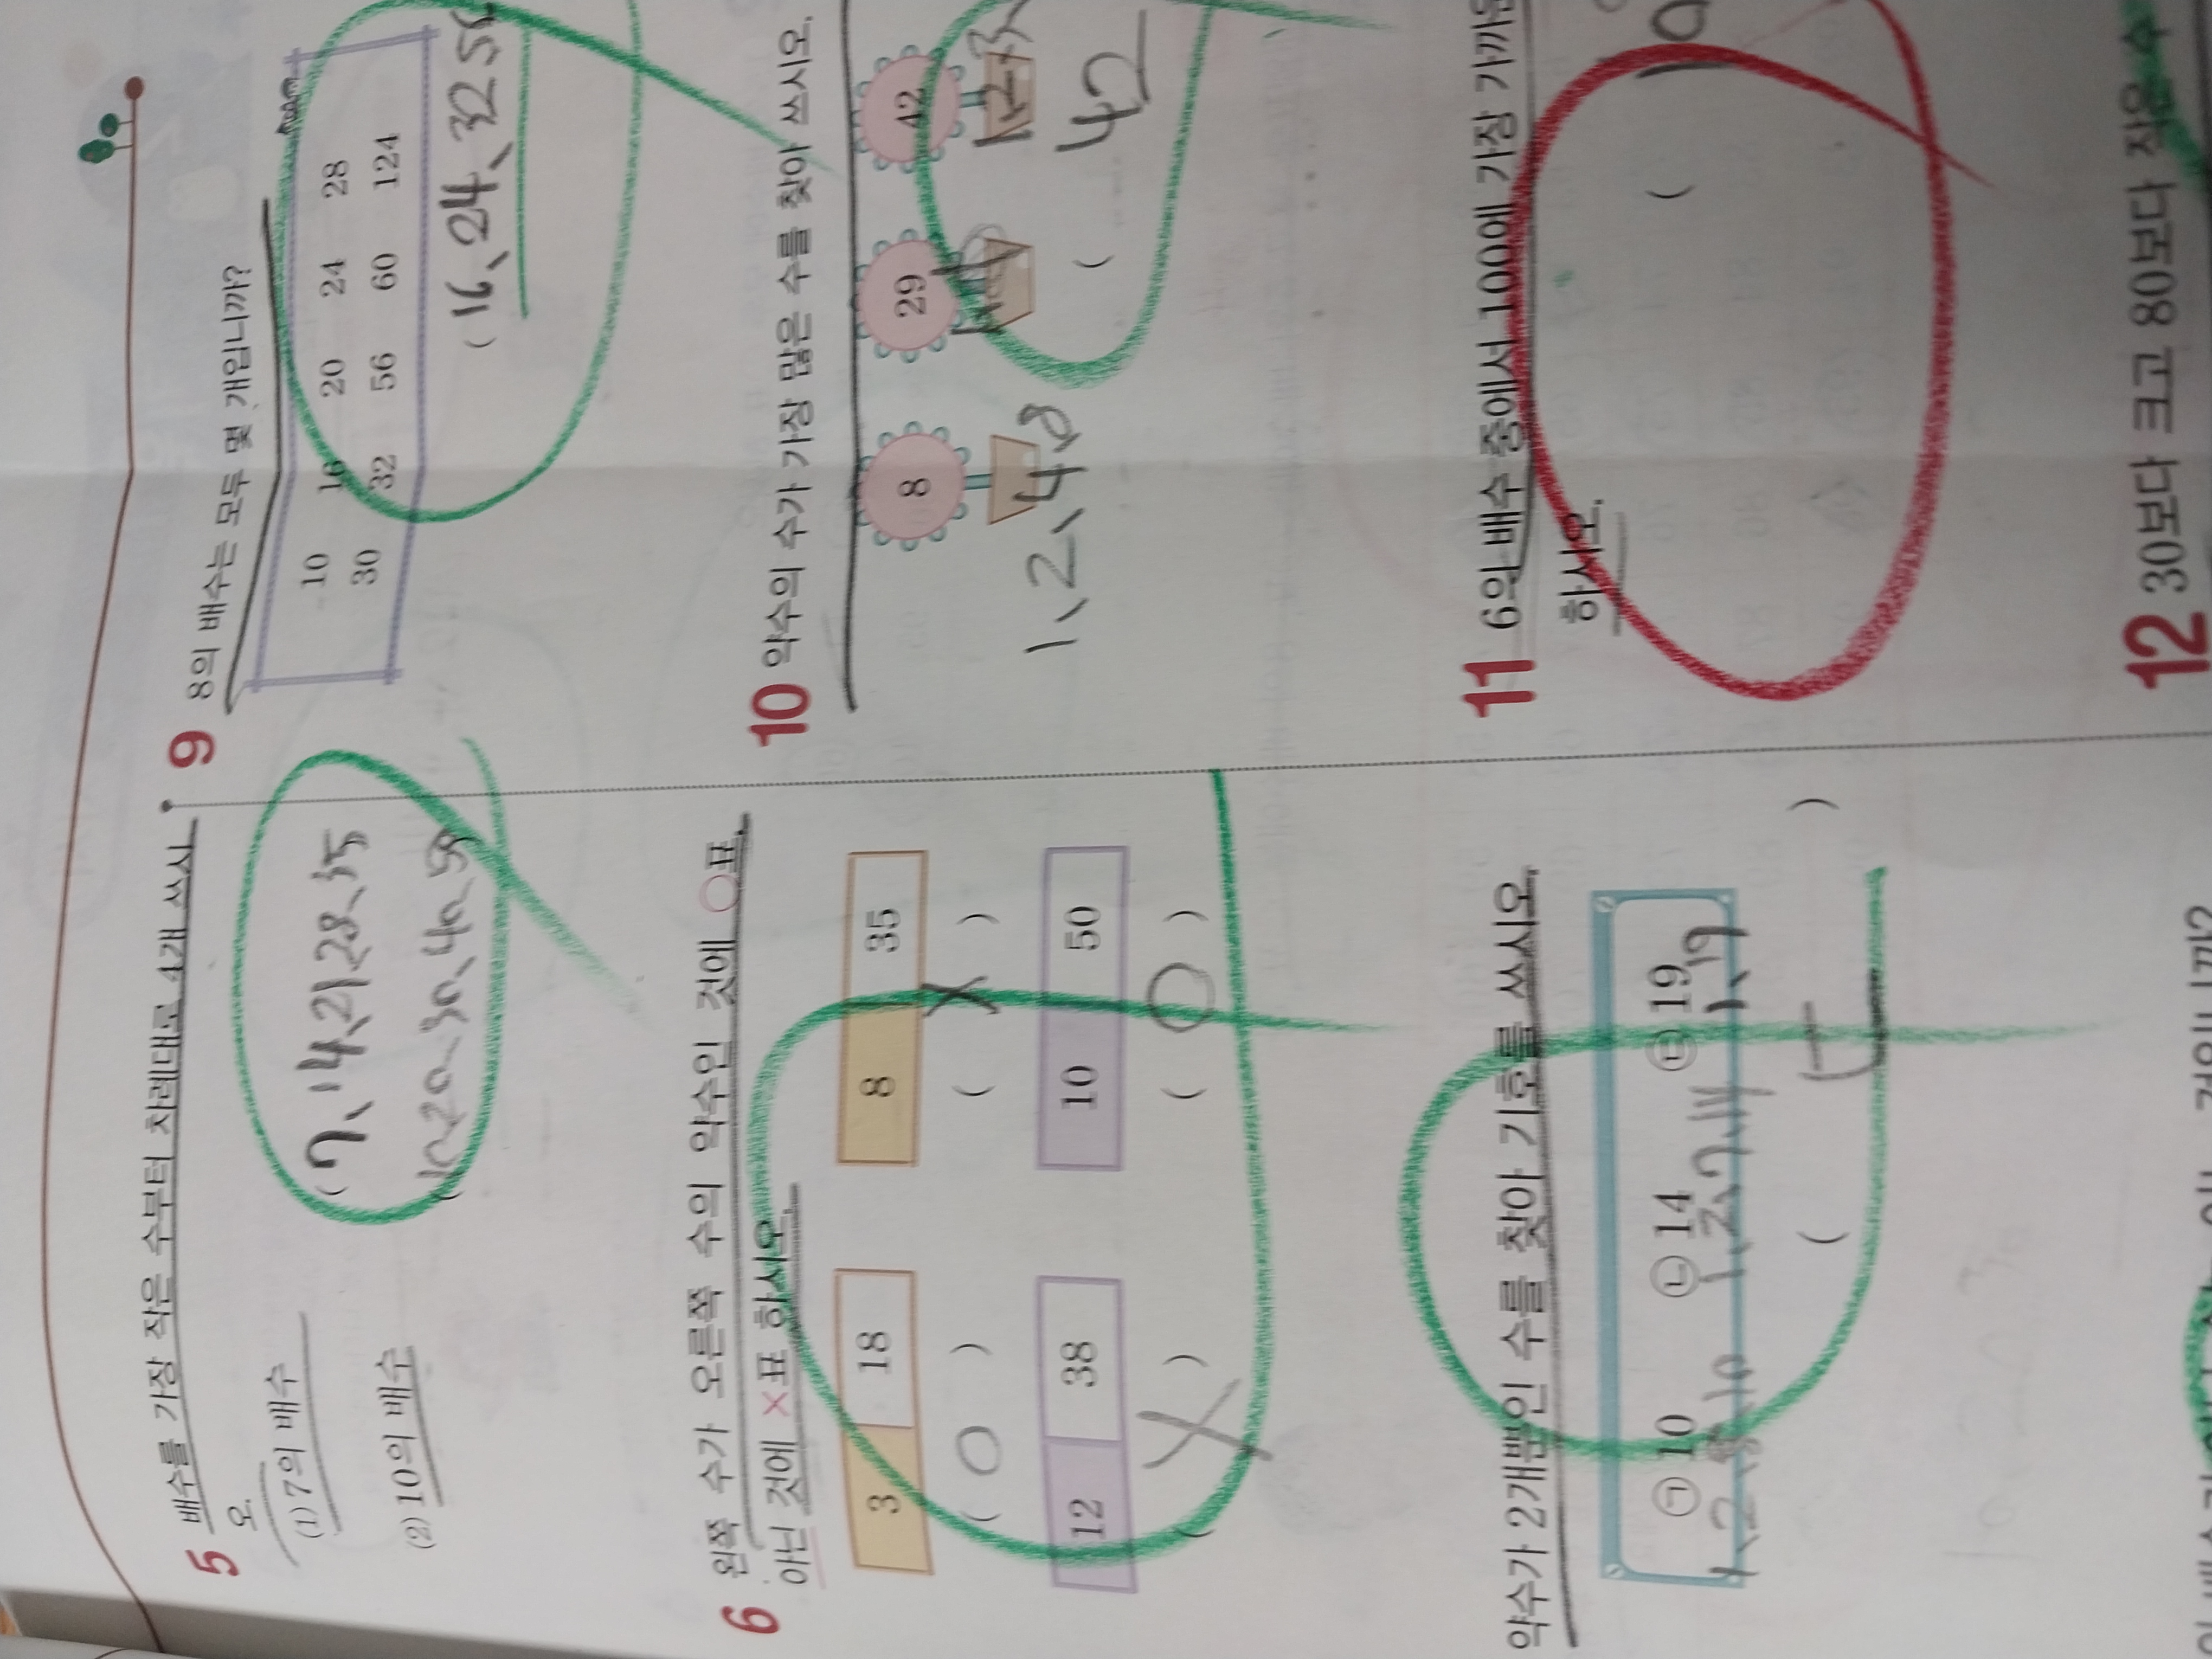 5 배수를 가장 작은 수부터 차례대로 4개 쓰시
오.
(1) 7의 배수
( 7、14、21、28、35
(2) 10의 배수
(10、20、30、40、50)
6 왼쪽 수가 오른쪽 수의 약수인 것에 ○표,
아닌 것에 ×표 하시오.
3 18 8 35
( O ) ( X )
12 38 10 50
( X ) ( O )
약수가 2개뿐인 수를 찾아 기호를 쓰시오.
㉠ 10 ㉡ 14 ㉢ 19
1、2、5、10 1、2、7、14 1、19
( ㄷ )
9 8의 배수는 모두 몇 개입니까?
10 16 20 24 28
30 32 56 60 124
( 16、24、32 56
10 약수의 수가 가장 많은 수를 찾아 쓰시오.
8 29 42
1、2、4、8
( 42
11 6의 배수 중에서 100에 가장 가까운
하시오.
( 10
12 30보다 크고 80보다 작은 수